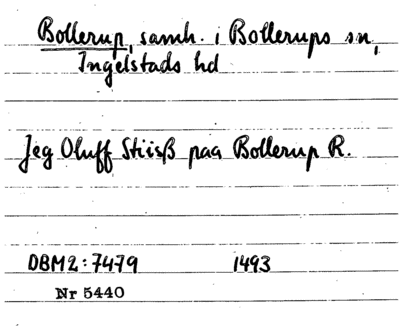 Bollerup, samh. i Bollerups sn,
Ingelstads hd
Jeg Oluff Stiisß paa Bollerup R.
DBM2:7479 1493
Nr 5440